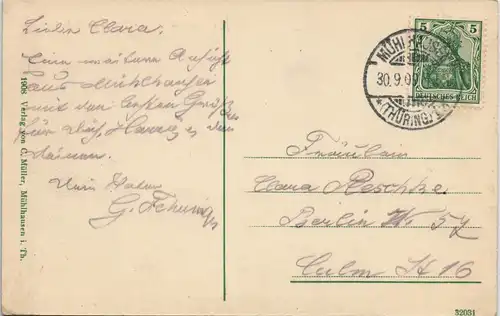 Liebe Clara.
Eine weitere Ansicht
aus Mühlhausen
mit den besten Grüßen
für dich,
Dein Vater
G.
1906 Verlag von C. Müller, Mühlhausen i. Th.
5 5
DEUTSCHES REICH
MÜHLHAUSEN
30.9.09
*(THÜRING.)
Fräulein
Clara Reschke
Berlin W 57
Culm H 16
32031